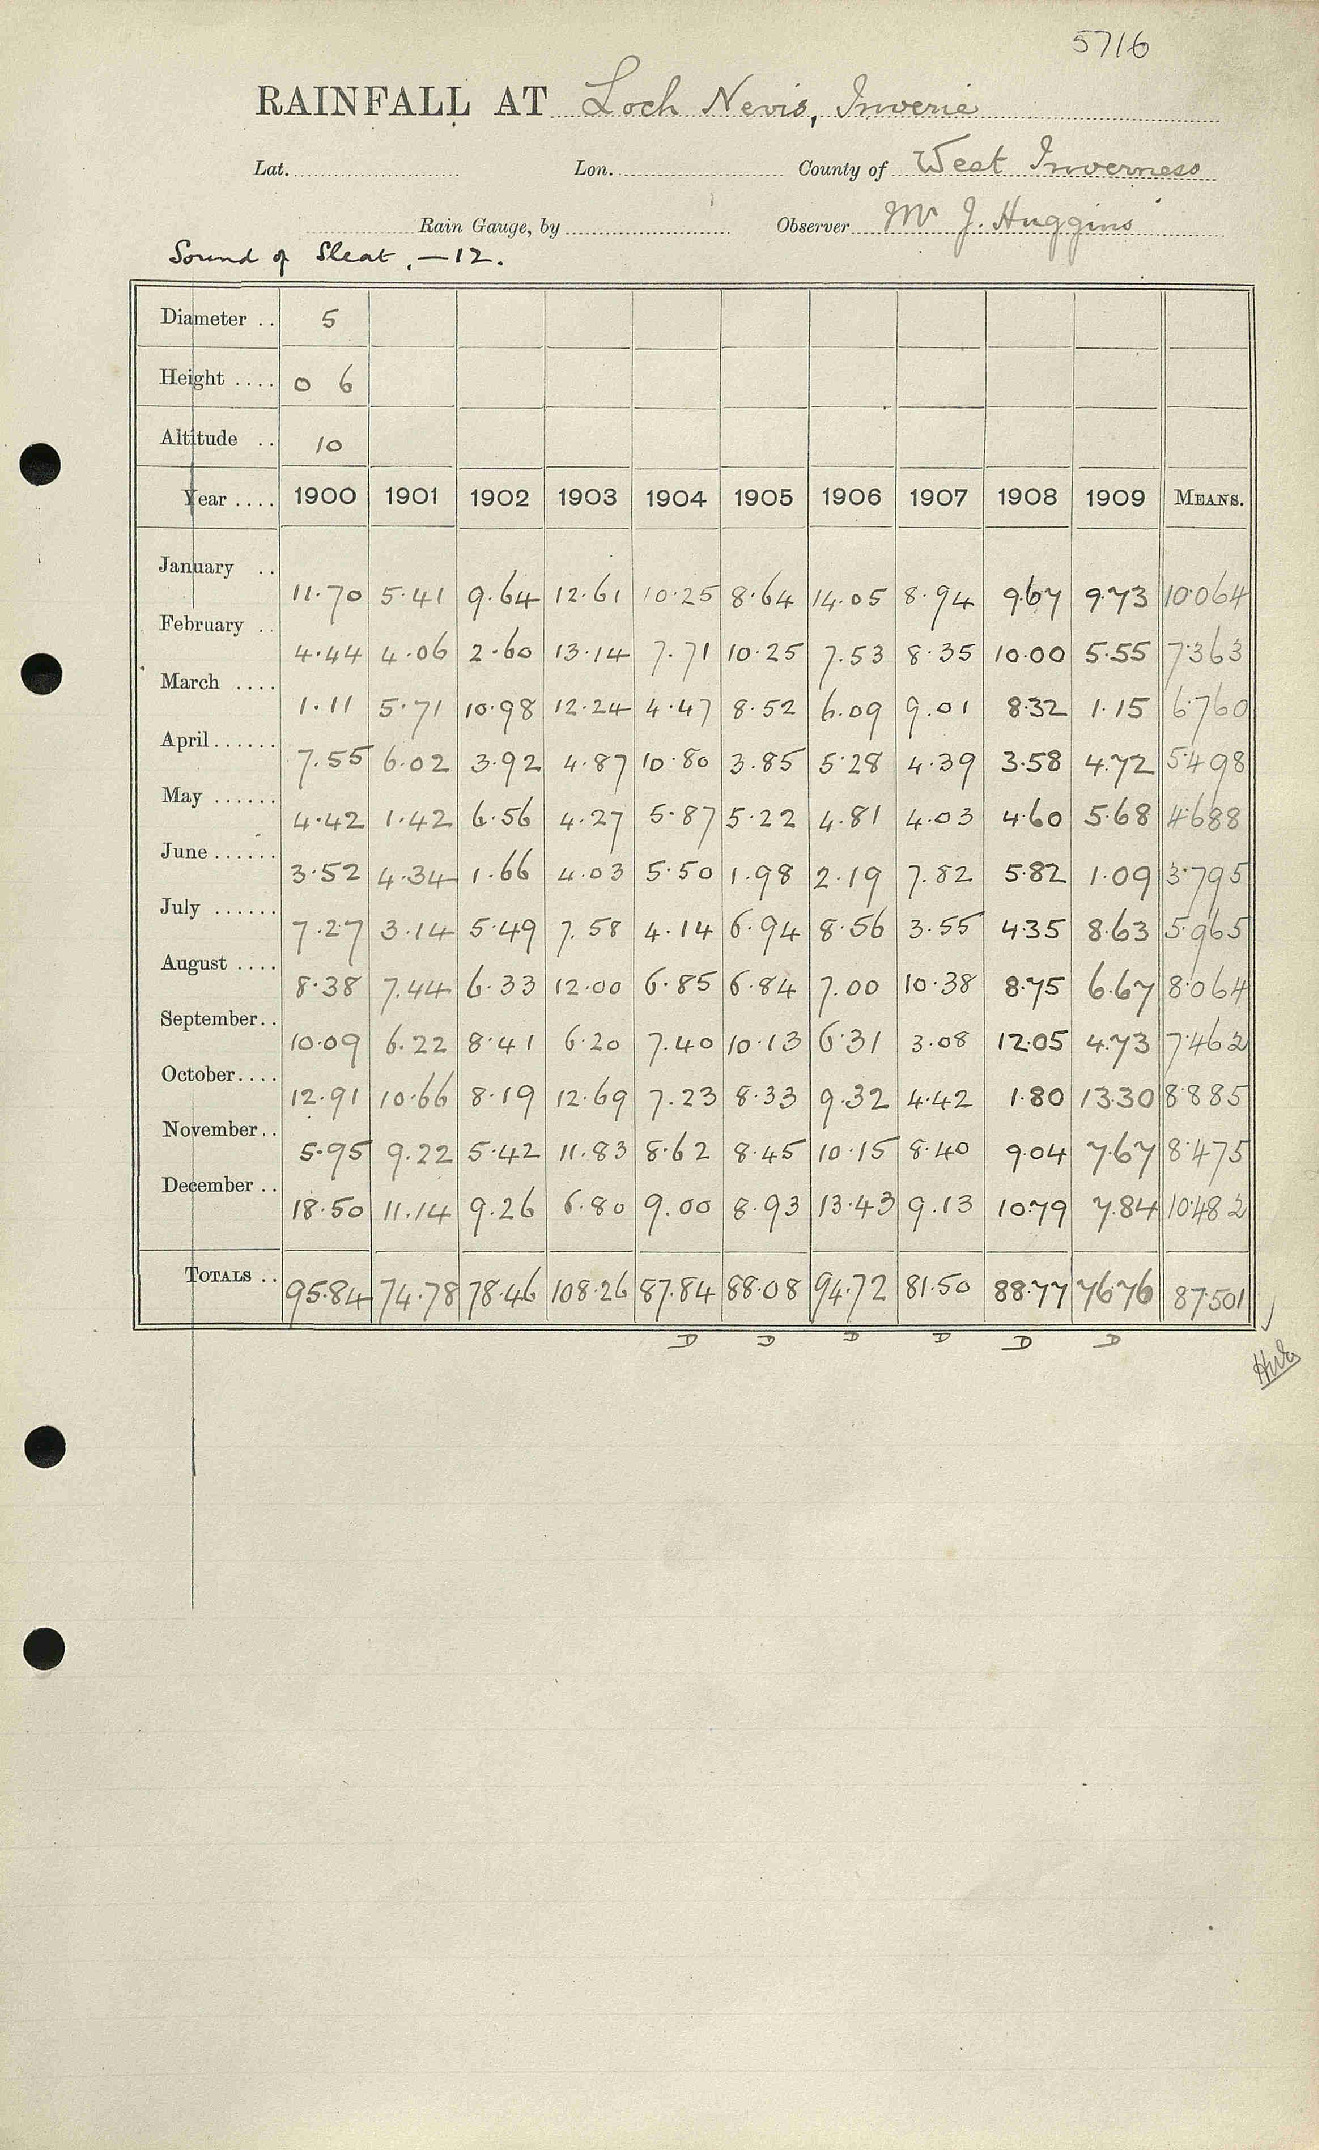 5716
RAINFALL AT Loch Nevis, Inverie
Lat. Lon. County of West Inverness
Rain Gauge, by Observer Mr J. Huggins
Sound of Sleat, —12.
Diameter .. 5
Height .... 0 6
Altitude .. 10
Year .... 1900 1901 1902 1903 1904 1905 1906 1907 1908 1909 MEANS.
January .. 11.70 5.41 9.64 12.61 10.25 8.64 14.05 8.94 9.67 9.73 10.064
February .. 4.44 4.06 2.60 13.14 7.71 10.25 7.53 8.35 10.00 5.55 7.363
March .... 1.11 5.71 10.98 12.24 4.47 8.52 6.09 9.01 8.32 1.15 6.760
April...... 7.55 6.02 3.92 4.87 10.80 3.85 5.28 4.39 3.58 4.72 5.498
May ...... 4.42 1.42 6.56 4.27 5.87 5.22 4.81 4.03 4.60 5.68 4.688
June...... 3.52 4.34 1.66 4.03 5.50 1.98 2.19 7.82 5.82 1.09 3.795
July ...... 7.27 3.14 5.49 7.58 4.14 6.94 8.56 3.55 4.35 8.63 5.965
August .... 8.38 7.44 6.33 12.00 6.85 6.84 7.00 10.38 8.75 6.67 8.064
September.. 10.09 6.22 8.41 6.20 7.40 10.13 6.31 3.08 12.05 4.73 7.462
October.... 12.91 10.66 8.19 12.69 7.23 8.33 9.32 4.42 1.80 13.30 8.885
November.. 5.95 9.22 5.42 11.83 8.62 8.45 10.15 8.40 9.04 7.67 8.475
December .. 18.50 11.14 9.26 6.80 9.00 8.93 13.43 9.13 10.79 7.84 10.482
TOTALS .. 95.84 74.78 78.46 108.26 87.84 88.08 94.72 81.50 88.77 76.76 87.501
D D D D D D